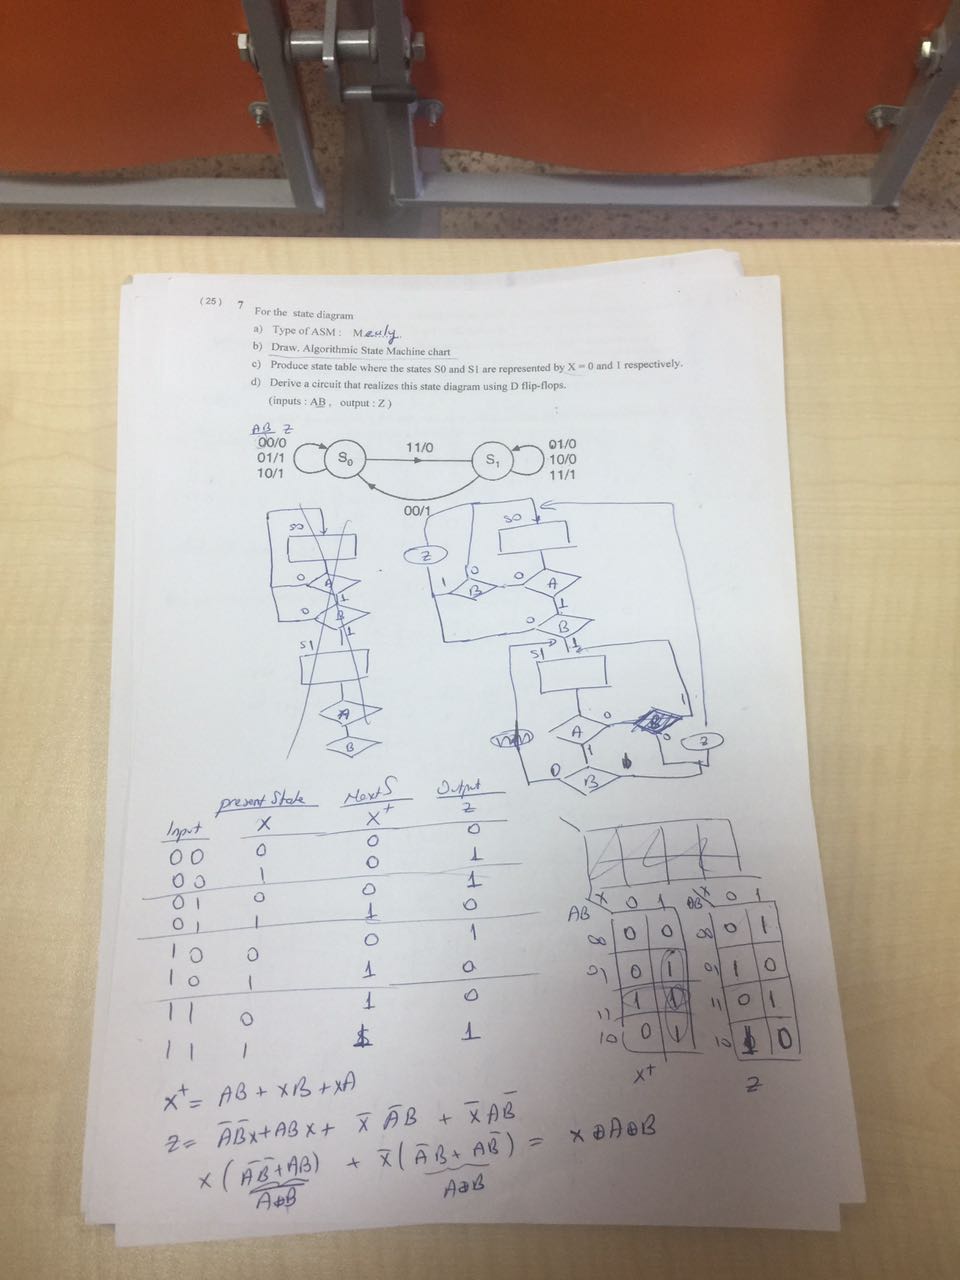 (25) 7
For the state diagram
a) Type of ASM : Meuly.
b) Draw. Algorithmic State Machine chart
c) Produce state table where the states S0 and S1 are represented by X = 0 and 1 respectively.
d) Derive a circuit that realizes this state diagram using D flip-flops.
(inputs : AB , output : Z )
AB Z
00/0
01/1
10/1
S₀
11/0
S₁
01/0
10/0
11/1
00/1
S0
0 A
1
0 B
1
S1
A
B
S0
Z
1 B 0
0 A
1
0 B
1
S1
A 0
1
1
0
Z
0 B
present State Next S Output
Input X X⁺ Z
0 0 0 0 0
0 0 1 0 1
0 1 0 0 1
0 1 1 1 0
1 0 0 0 1
1 0 1 1 0
1 1 0 1 0
1 1 1 1 1
AB X 0 1
00 0 0
01 0 1
11 1 1
10 0 1
X⁺
AB X 0 1
00 0 1
01 1 0
11 0 1
10 1 0
Z
X⁺ = AB + XB + XA
Z = A̅B̅X + ABX + X̅A̅B + X̅AB̅
X (A̅B̅ + AB) + X̅ (A̅B + AB̅) = X⊕A⊕B
A⊕B A⊕B